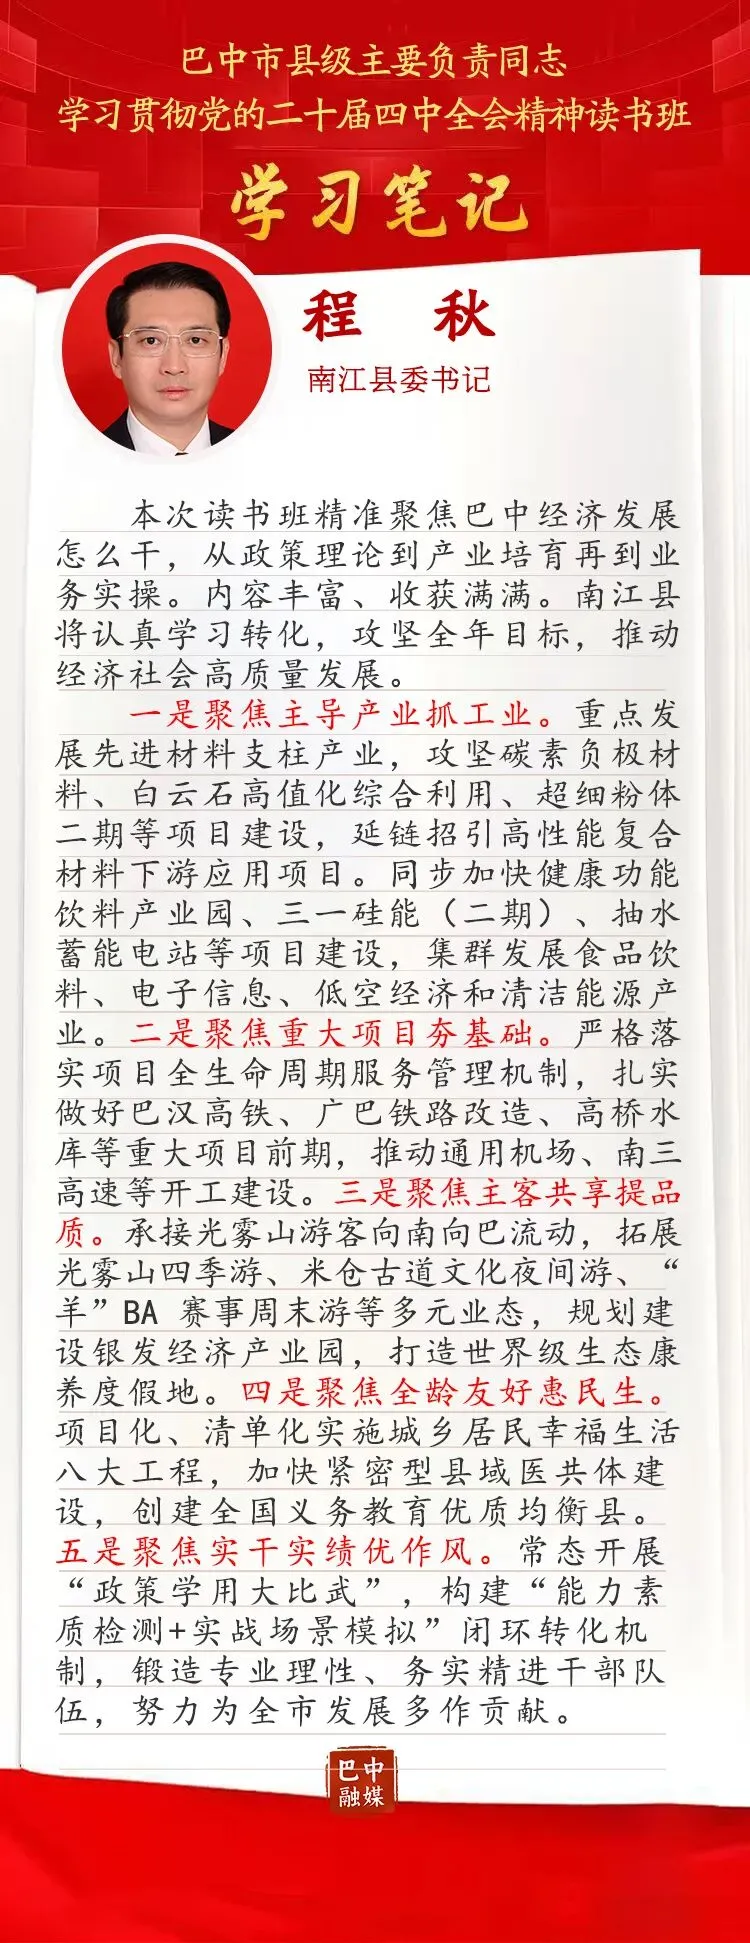 巴中市县级主要负责同志
学习贯彻党的二十届四中全会精神读书班
学习笔记
程 秋
南江县委书记
本次读书班精准聚焦巴中经济发展
怎么干，从政策理论到产业培育再到业
务实操。内容丰富、收获满满。南江县
将认真学习转化，攻坚全年目标，推动
经济社会高质量发展。
一是聚焦主导产业抓工业。重点发
展先进材料支柱产业，攻坚碳素负极材
料、白云石高值化综合利用、超细粉体
二期等项目建设，延链招引高性能复合
材料下游应用项目。同步加快健康功能
饮料产业园、三一硅能（二期）、抽水
蓄能电站等项目建设，集群发展食品饮
料、电子信息、低空经济和清洁能源产
业。二是聚焦重大项目夯基础。严格落
实项目全生命周期服务管理机制，扎实
做好巴汉高铁、广巴铁路改造、高桥水
库等重大项目前期，推动通用机场、南三
高速等开工建设。三是聚焦主客共享提品
质。承接光雾山游客向南向巴流动，拓展
光雾山四季游、米仓古道文化夜间游、“
羊”BA 赛事周末游等多元业态，规划建
设银发经济产业园，打造世界级生态康
养度假地。四是聚焦全龄友好惠民生。
项目化、清单化实施城乡居民幸福生活
八大工程，加快紧密型县域医共体建
设，创建全国义务教育优质均衡县。
五是聚焦实干实绩优作风。常态开展
“政策学用大比武”，构建“能力素
质检测+实战场景模拟”闭环转化机
制，锻造专业理性、务实精进干部队
伍，努力为全市发展多作贡献。
巴中
融媒